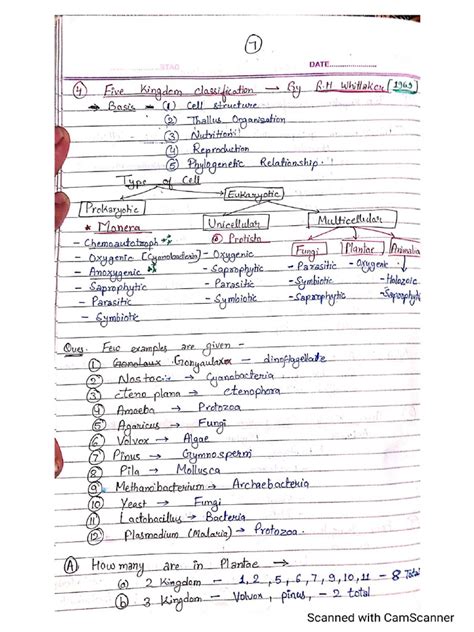 7
STAG DATE
4 Five Kingdom classification → By R.H Whittaker [1969]
→ Basis → ① Cell structure
② Thallus Organization
③ Nutrition
④ Reproduction
⑤ Phylogenetic Relationship.
Type of Cell
Prokaryotic Eukaryotic
* Monera Unicellular Multicellular
Protista Fungi Plantae Animalia
- Chemoautotroph
- Oxygenic [Cyanobacteria] - Oxygenic - Parasitic - Oxygenic
- Anoxygenic - Saprophytic - Symbiotic - Holozoic
- Saprophytic - Parasitic - Saprophytic - Saprophytic
- Parasitic - Symbiotic
- Symbiotic
Ques. Few examples are given -
① Gonyaulax - dinoflagellate
② Nostoc → Cyanobacteria
③ cteno plana → ctenophora
④ Amoeba → Protozoa
⑤ Agaricus → Fungi
⑥ Volvox → Algae
⑦ Pinus → Gymnosperm
⑧ Pila → Mollusca
⑨ Methanobacterium → Archaebacteria
⑩ Yeast → Fungi
⑪ Lactobacillus → Bacteria
⑫ Plasmodium (Malaria) → Protozoa.
A How many are in Plantae →
(a) 2 Kingdom - 1, 2, 5, 6, 7, 9, 10, 11 - 8 Total
(b) 3 Kingdom - Volvox, pinus, - 2 total
Scanned with CamScanner